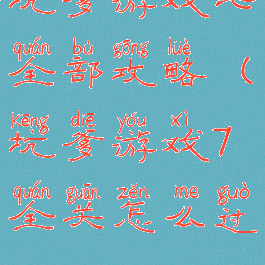 坑爹游戏
quán bù gōng lüè
全部攻略(
kēng diē yóu xì
坑爹游戏7
quán guān zěn me guò
全关怎么过